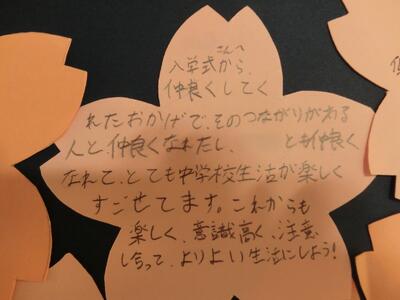 さんへ
入学式から、
仲良くしてく
れたおかげで、そのつながりがある
人と仲良くなれたし、 とも仲良く
なれて、とても中学校生活が楽しく
すごせてます。これからも
楽しく、意識高く、注意
し合って、よりよい生活にしよう!